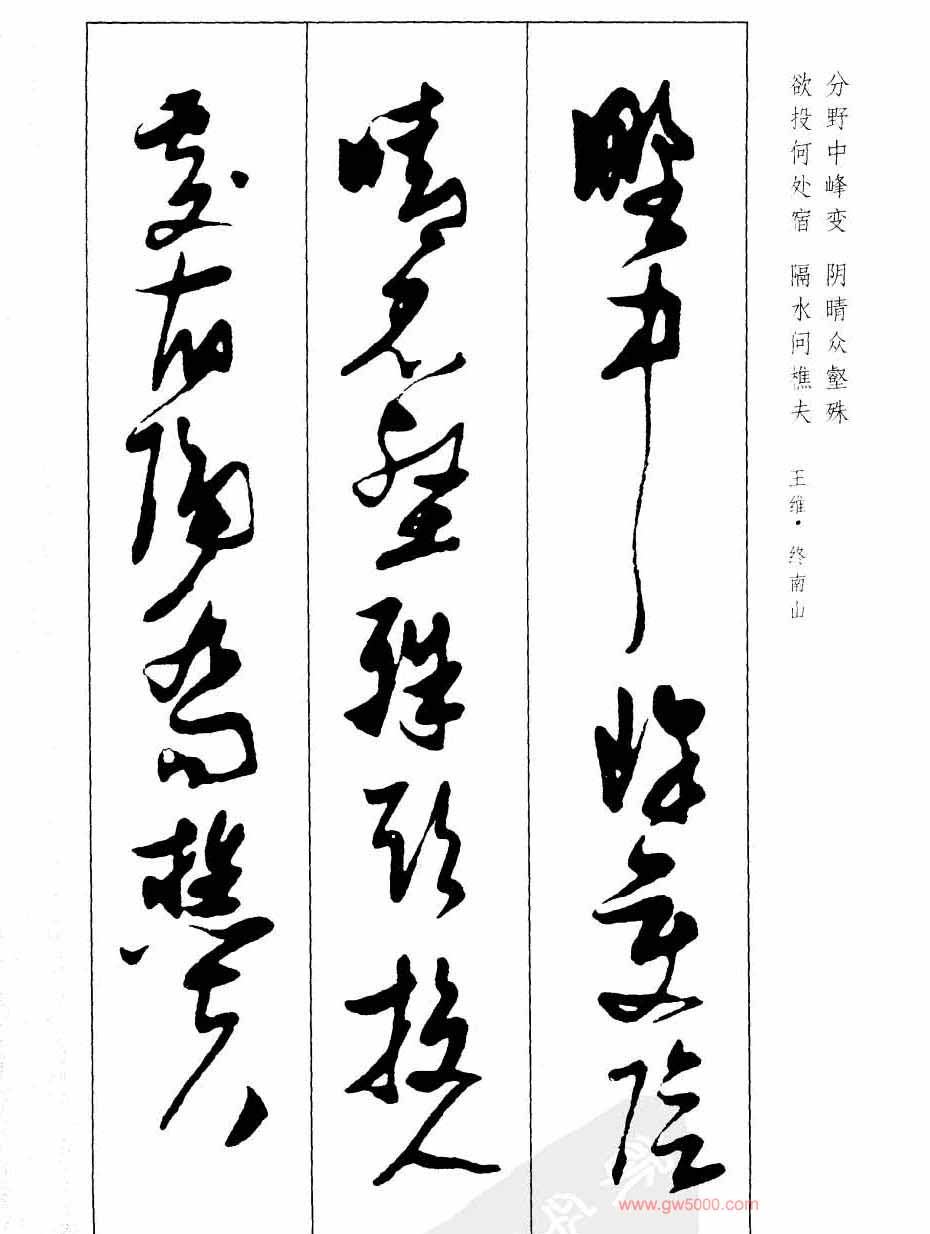 分野中峰变 阴晴众壑殊
欲投何处宿 隔水问樵夫
王维·终南山
野中峰變陰
晴眾壑殊欲投人
處宿隔水問樵夫
www.gw5000.com